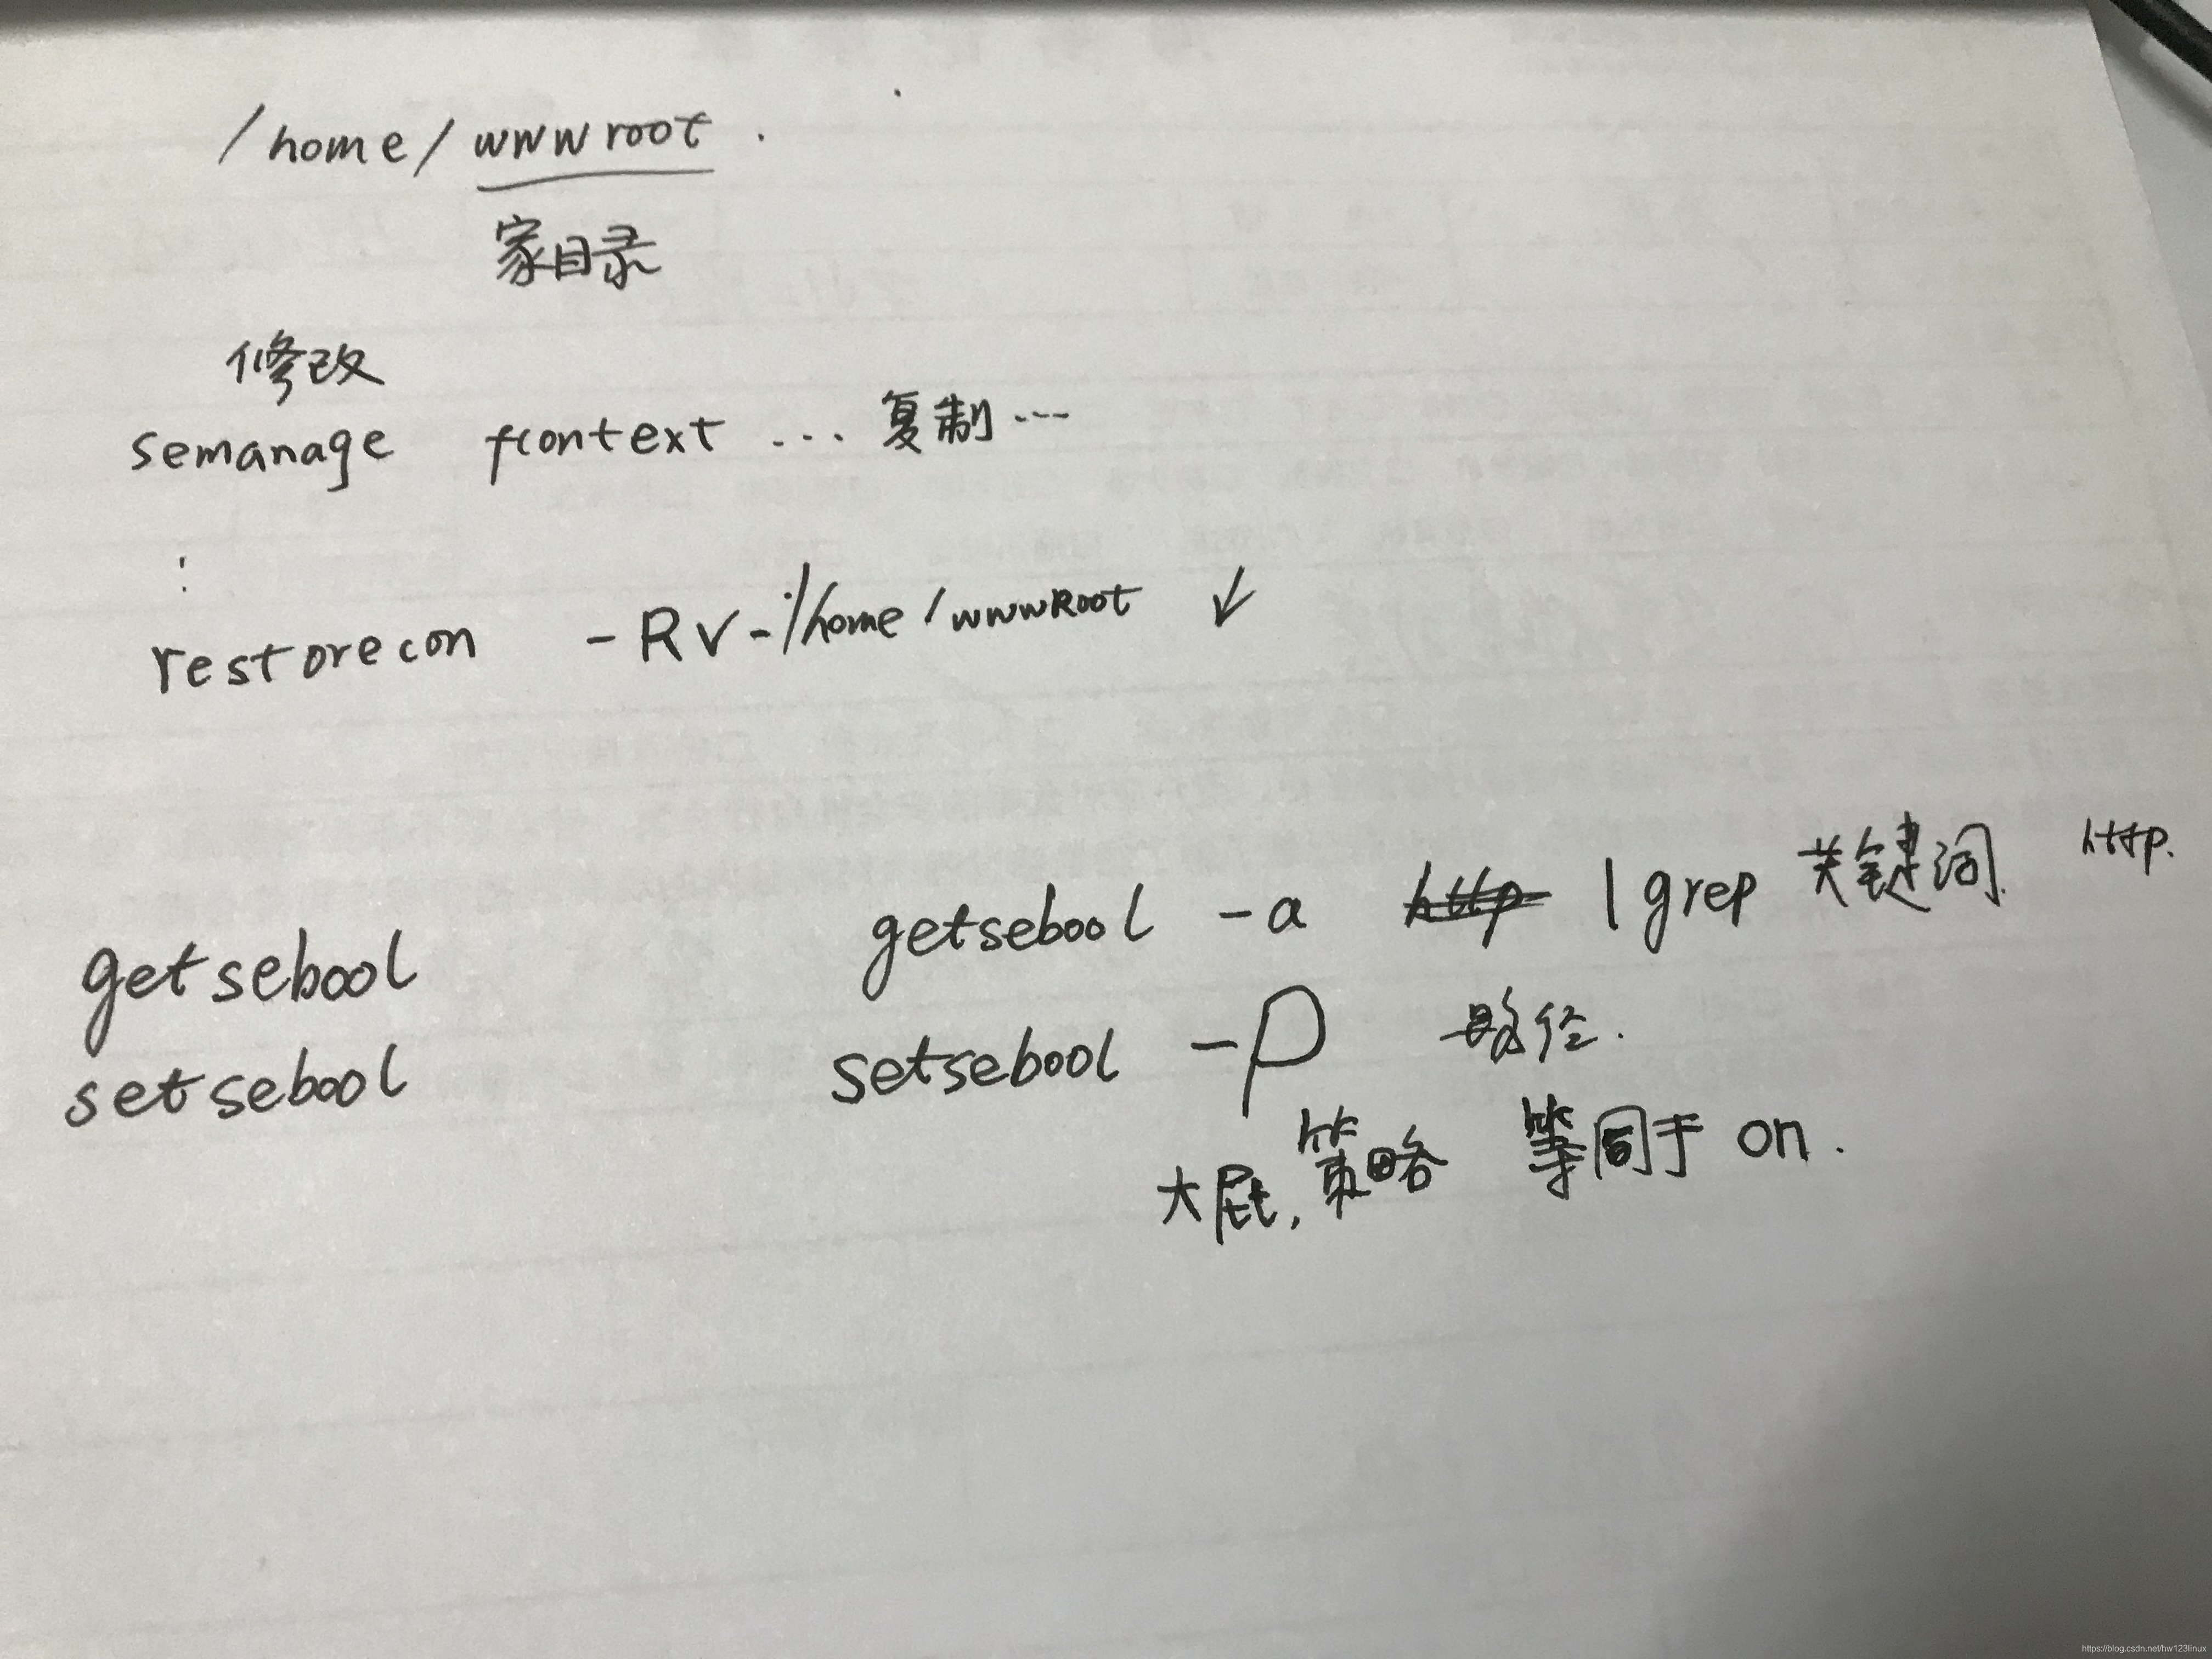 /home/wwwroot.
家目录
修改
semanage fcontext ... 复制 ...
restorecon -Rv /home/wwwRoot ↓
getsebool -a http | grep 关键词. http.
getsebool
setsebool -P 路径.
setsebool
大屁, 策略 等同于 on.
https://blog.csdn.net/hw123linux